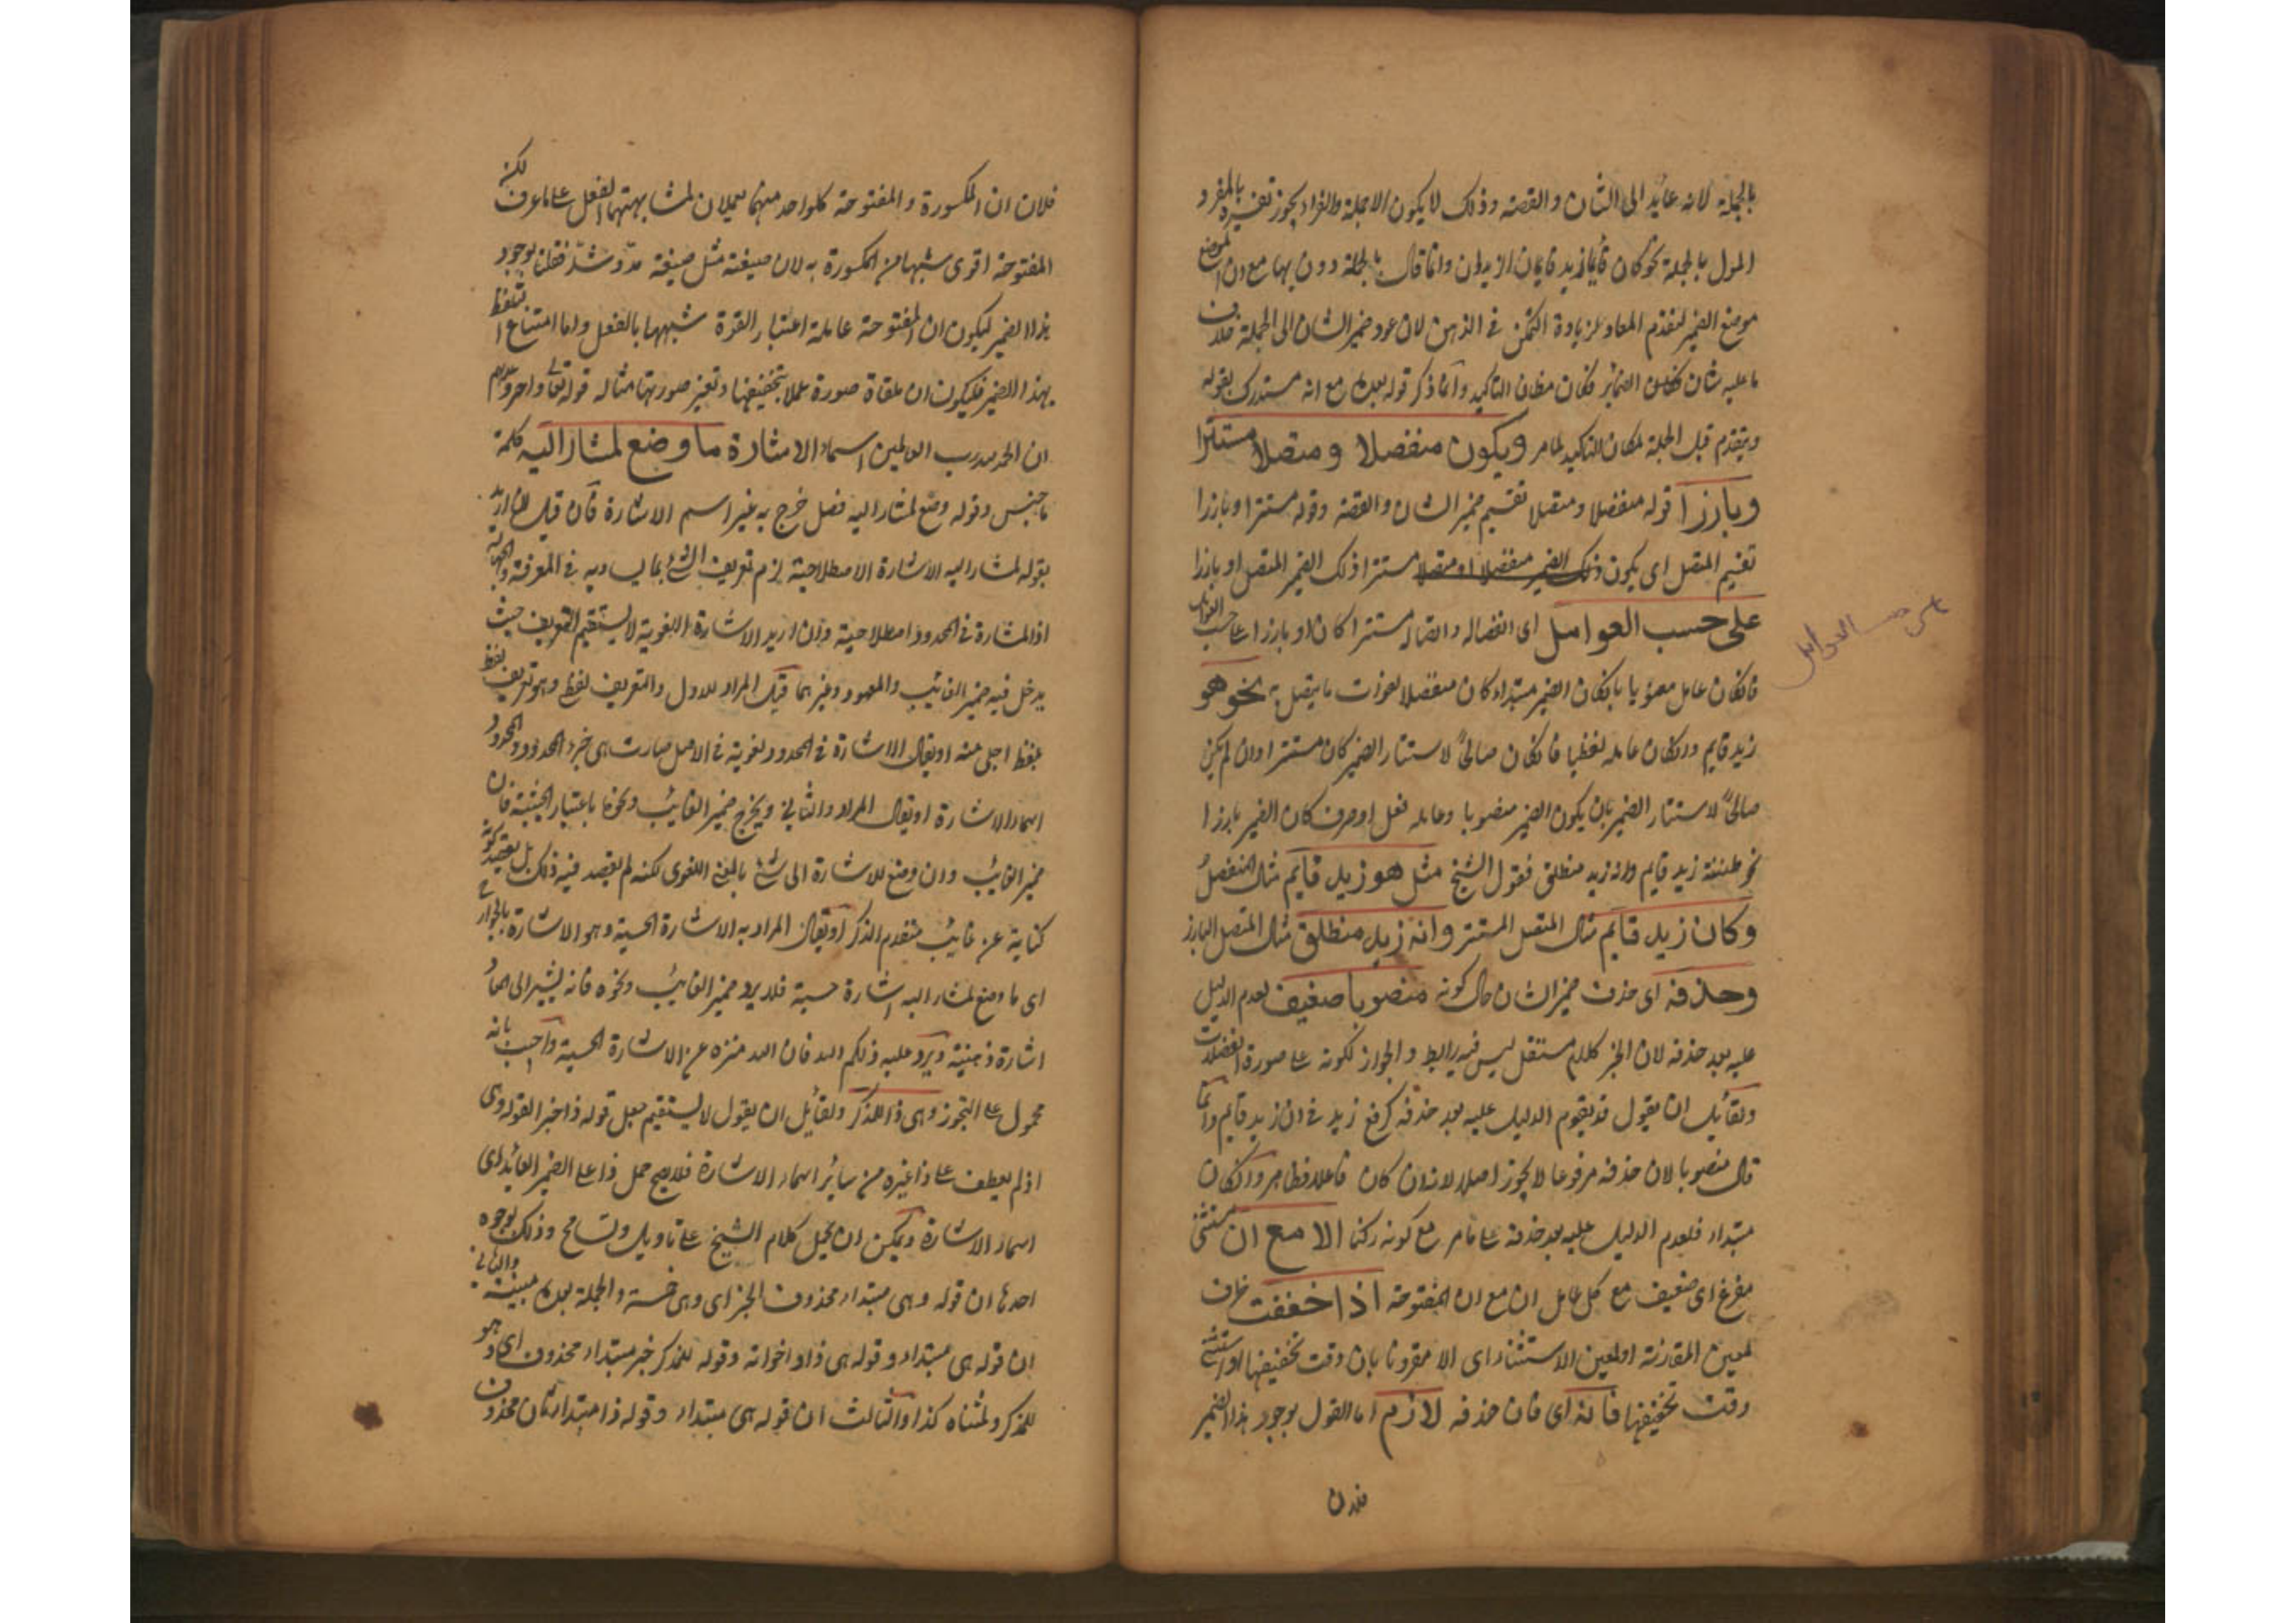 بالجملة لانه عايد الى الشان والقصه وذلك لا يكون الا جملة والفراد يجوز تفسيره بالمفرد
المول بالجملة نحو كان قائما زيد قايمان الزيدان وانما قال بالجملة دون بها مع ان الموضع
موضع الضمير لتقدم المعاد لزيادة التمكن في الذهن لان عود ضمير الشان الى الجملة خلاف
ما عليه شان الضمائر فكان مظان التاكيد وانما ذكر قوله بعده مع انه مستدرك بقوله
ويتقدم قبل الجملة لمكان التاكيد لما مر ويكون منفصلا ومتصلا مستترا
وبارزا قوله منفصلا ومتصلا تقسيم ضمير الشان والقصة وقوله مستترا وبارزا
تقسيم المتصل اى يكون ذلك الضمير منفصلا او متصلا مستترا ذلك الضمير المتصل او بارزا
على حسب العوامل اى انفصاله واتصاله مستترا كان او بارزا على حسب العوامل
على حسب العوامل
فانكان عامله معنويا بانكان الضمير مبتداء كان منفصلا لعوذت ما يتصل به نحو هو
زيد قايم وانكان عامله لفظيا فانكان صالحًا لاستتار الضمير كان مستترا وان لم يكن
صالحًا لاستتار الضمير بان يكون الضمير منصوبا وعامله فعل او حرف كان الضمير بارزا
نحو ظننته زيد قايم وانه زيد منطلق فقول الشيخ مثل هو زيد قايم مثال المنفصل
وكان زيد قايم مثال المتصل المستتر وانه زيد منطلق مثال المتصل البارز
وحذفه اى حذف ضمير الشان حال كونه منصوبا ضعيف لعدم الدليل
عليه بعد حذفه لان الخبر كلام مستقل ليس فيه رابط والجواز لكونه على صورة الفضلات
ولقائل ان يقول قد يقوم الدليل عليه بعد حذفه كرفع زيد في ان زيد قايم وانما
قال منصوبا لان حذفه مرفوعا لا يجوز اصلا لانه ان كان فاعلا فظاهر وانكان
مبتداء فلعدم الدليل عليه بعد حذفه على ما مر مع كونه ركنا الا مع ان مستثنى
مفرغ اى ضعيف مع كل عامل ان مع ان المفتوحة اذا خففت ظرف
لمعين المقارنة او لعين الاستثناء اى الا مقرونا بان وقت تخفيفها او استثنى
وقت تخفيفها فانه اى فان حذفه لازم اما القول بوجود هذا الضمير
فلان
فلان ان المكسورة والمفتوحة كلواحد منهما يعملان لمشابهتهما الفعل على ما عرف لكنه
المفتوحة اقوى شبها من المكسورة به لان صيغته مثل صيغة مدّ وشدّ فقلنا بوجود
هذا الضمير ليكون ان المفتوحة عاملة اعتبار القوة شبهها بالفعل واما امتناع التلفظ
بهذا الضمير فليكون ان ملقاة صورة عملا بتخفيفها وتغير صورتها مثاله قوله تعالى واخر دعويهم
ان الحمد لله رب العالمين اسماء الاشارة ما وضع لمشار اليه كلمة
ما جنس وقوله وضع لمشار اليه فصل خرج به غير اسم الاشارة فان قيل ان اريد
بقوله لمشار اليه الاشارة الاصطلاحية لزم تعريف الشئ بما يساويه في المعرفة والجهالة
اذ المشارة في الحدود اصطلاحية وان اريد الاشارة اللغوية لا يستقيم التعريف حيث
يدخل فيه ضمير الغائب والمعهود وغيرهما قيل المراد الاول والتعريف لفظي وهو تعريف لفظ
بلفظ اجلى منه او يقال الاشارة في الحدود لغوية في الاصل صارت هى جزء الحدود والمحدود
اسماء الاشارة او يقال المراد والثاني ويخرج ضمير الغائب ونحوها باعتبار الحيثية فان
ضمير الغائب وان وضع للاشارة الى شئ بالمعنى اللغوى لكنه لم يقصد فيه ذلك بل يقصد كونه
كناية عن غائب متقدم الذكر او يقال المراد به الاشارة الحسية وهو الاشارة بالجوارح
اى ما وضع لمشار اليه اشارة حسية فلا يرد ضمير الغائب ونحوه فانه يشير الى المعاد
اشارة ذهنية ويرد عليه ذلكم الله فان الله منزه عن الاشارة الحسية واجيب بانه
محمول على التجوز وهى ذا للذكر ولقائل ان يقول لا يستقيم جعل قوله ذا خبرا لقوله وهى
اذ لم يعطف على ذا غيره من ساير اسماء الاشارة فلا يصح حمل ذا على الضمير العائد اى
اسماء الاشارة ويمكن ان يحمل كلام الشيخ على تاويل وتسامح وذلك بوجوه
احدها ان قوله وهى مبتداء محذوف الخبر اى وهى خمسة والجملة بعده مبينة والثاني
ان قوله هى مبتداء وقوله هى ذا واخواته وقوله للمذكر خبر مبتداء محذوف اى وهو
للمذكر ولمثناه كذا والثالث ان قوله هى مبتداء وقوله ذا مبتداء ثان محذوف